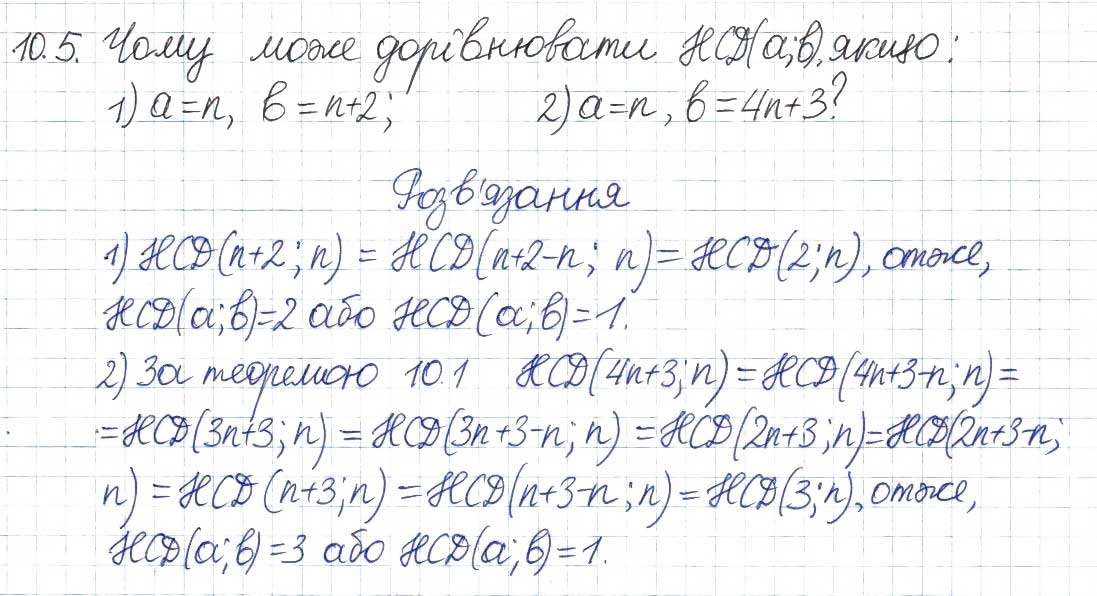 10.5. Чому може дорівнювати НСД(a;b), якщо:
1) a=n, b=n+2; 2) a=n, b=4n+3?
Розв'язання
1) НСД(n+2; n) = НСД(n+2-n; n)= НСД(2;n), отже,
НСД(a;b)=2 або НСД(a;b)=1.
2) За теоремою 10.1 НСД(4n+3;n) = НСД(4n+3-n;n)=
=НСД(3n+3; n) = НСД(3n+3-n; n) =НСД(2n+3;n)=НСД(2n+3-n;
n) = НСД(n+3;n) = НСД(n+3-n;n)= НСД(3;n), отже,
НСД(a;b)=3 або НСД(a;b)=1.